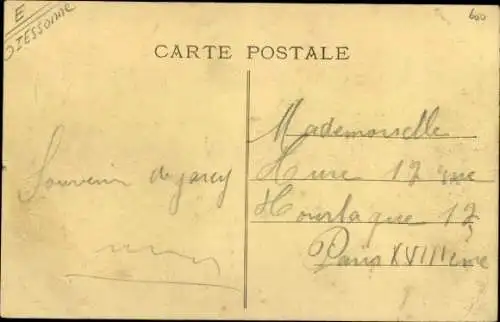 E
ESSONNE
600
CARTE POSTALE
Souvenir de jarcy
Mademoiselle
Hure 17 rue
Hourtaque 17
Paris XVIIIeme